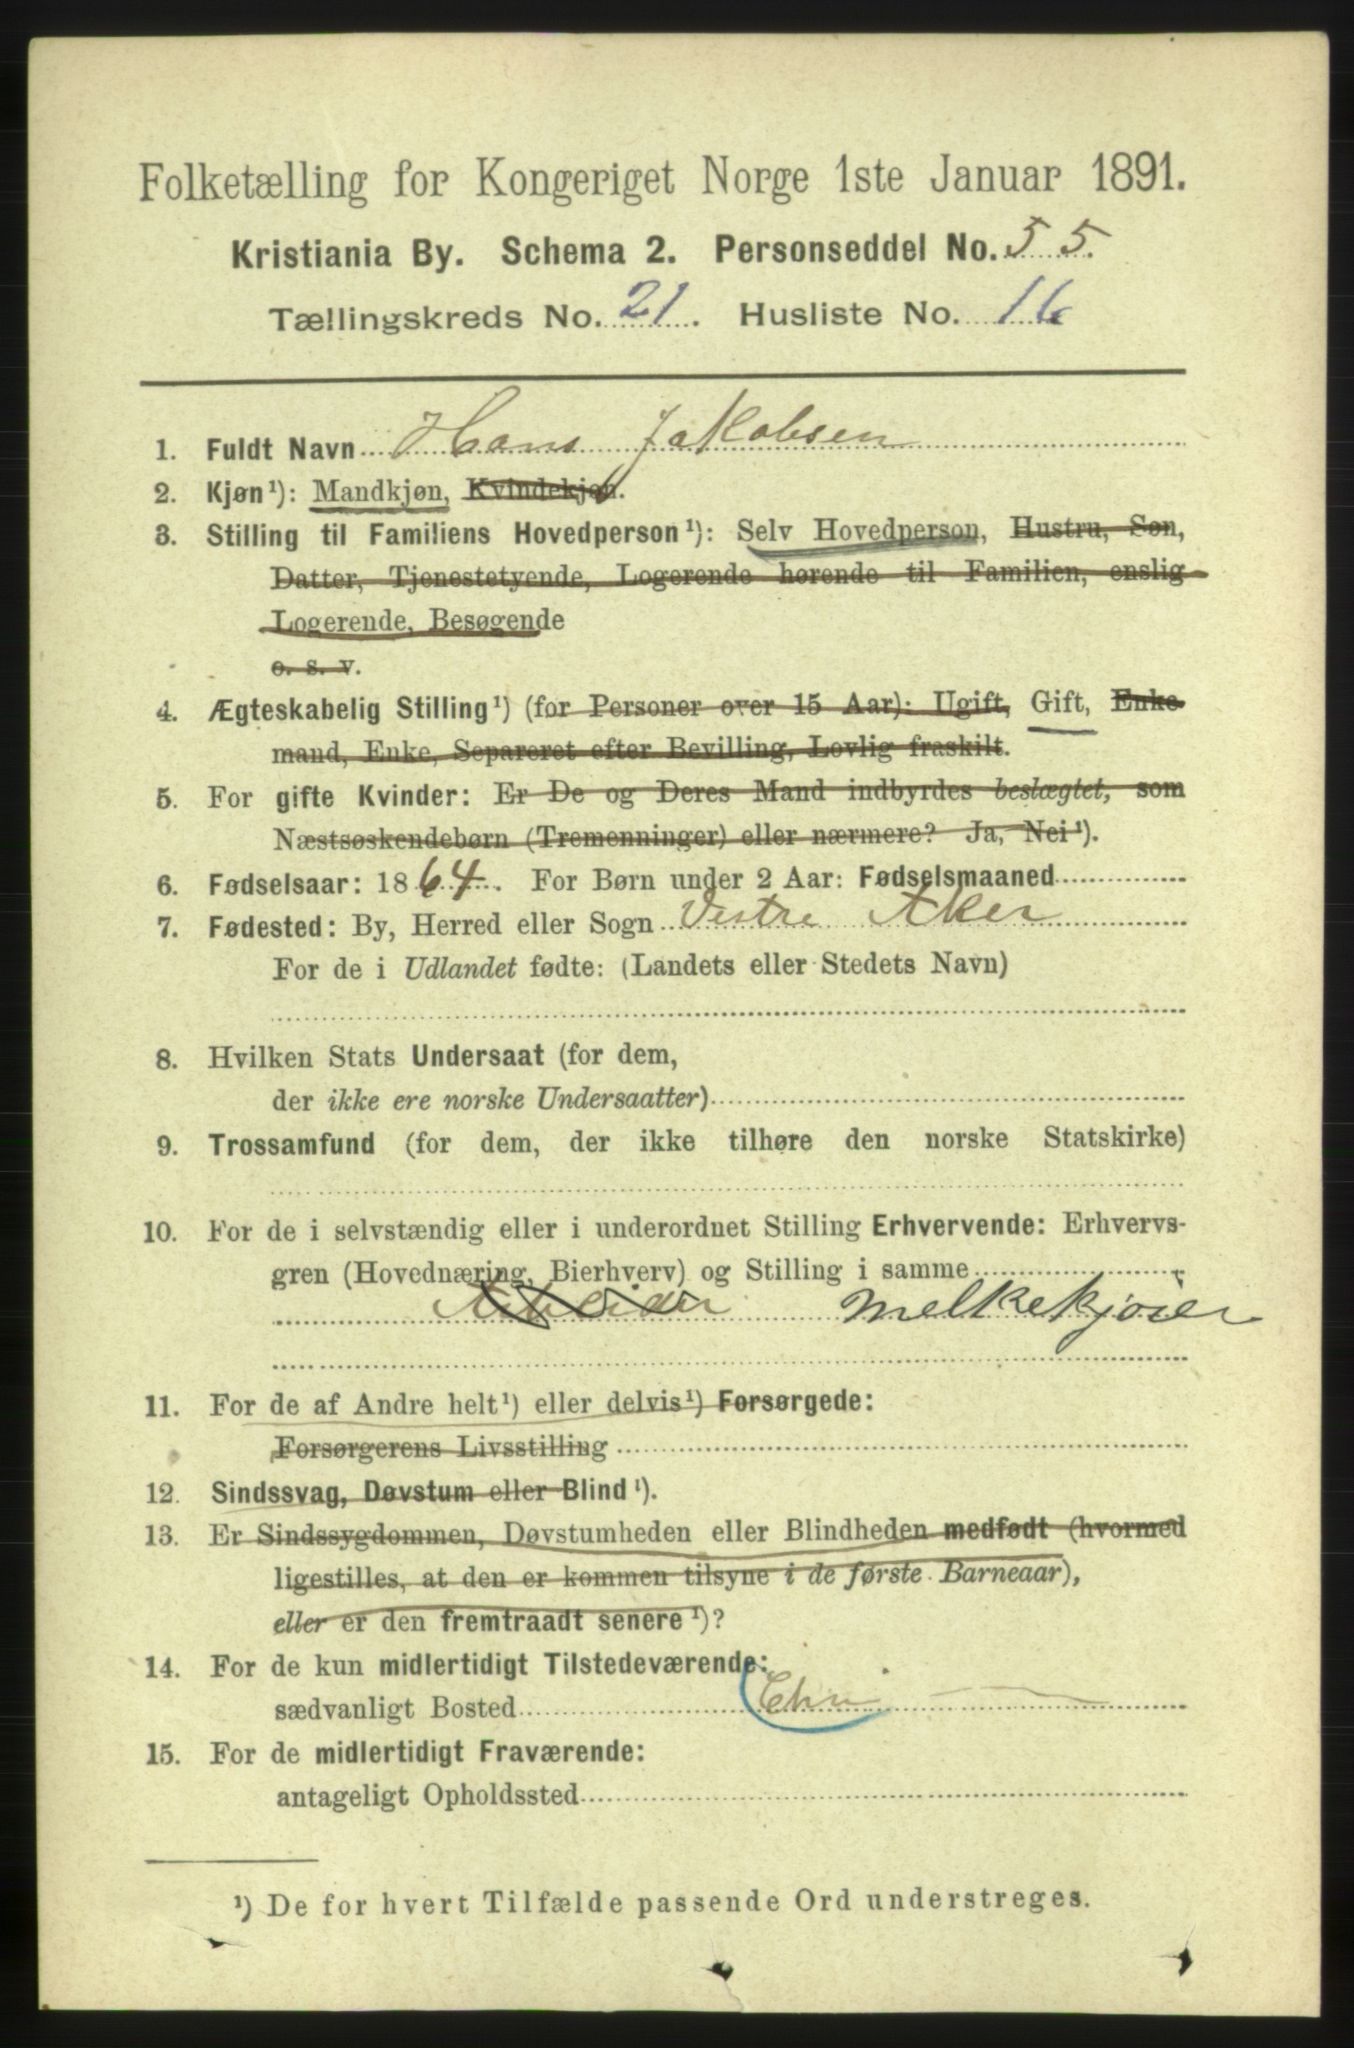 Folketælling for Kongeriget Norge 1ste Januar 1891.
Kristiania By. Schema 2. Personseddel No. 55.
Tællingskreds No. 21. Husliste No. 16
1. Fuldt Navn Hans Jakobsen
2. Kjøn¹): Mandkjøn, Kvindekjøn.
3. Stilling til Familiens Hovedperson¹): Selv Hovedperson, Hustru, Søn,
Datter, Tjenestetyende, Logerende hørende til Familien, enslig
Logerende, Besøgende
o. s. v.
4. Ægteskabelig Stilling¹) (for Personer over 15 Aar): Ugift, Gift, Enke-
mand, Enke, Separeret efter Bevilling, Lovlig fraskilt.
5. For gifte Kvinder: Er De og Deres Mand indbyrdes beslægtet, som
Næstsøskendebørn (Tremenninger) eller nærmere? Ja, Nei¹).
6. Fødselsaar: 1864. For Børn under 2 Aar: Fødselsmaaned
7. Fødested: By, Herred eller Sogn Vestre Aker
For de i Udlandet fødte: (Landets eller Stedets Navn)
8. Hvilken Stats Undersaat (for dem,
der ikke ere norske Undersaatter)
9. Trossamfund (for dem, der ikke tilhøre den norske Statskirke)
10. For de i selvstændig eller i underordnet Stilling Erhvervende: Erhvervs-
gren (Hovednæring, Bierhverv) og Stilling i samme
Arbeider Melkekjører
11. For de af Andre helt¹) eller delvis¹) Forsørgede:
Forsørgerens Livsstilling
12. Sindssvag, Døvstum eller Blind¹).
13. Er Sindssygdommen, Døvstumheden eller Blindheden medfødt (hvormed
ligestilles, at den er kommen tilsyne i de første Barneaar),
eller er den fremtraadt senere¹)?
14. For de kun midlertidigt Tilstedeværende:
sædvanligt Bosted
15. For de midlertidigt Fraværende:
antageligt Opholdssted
¹) De for hvert Tilfælde passende Ord understreges.